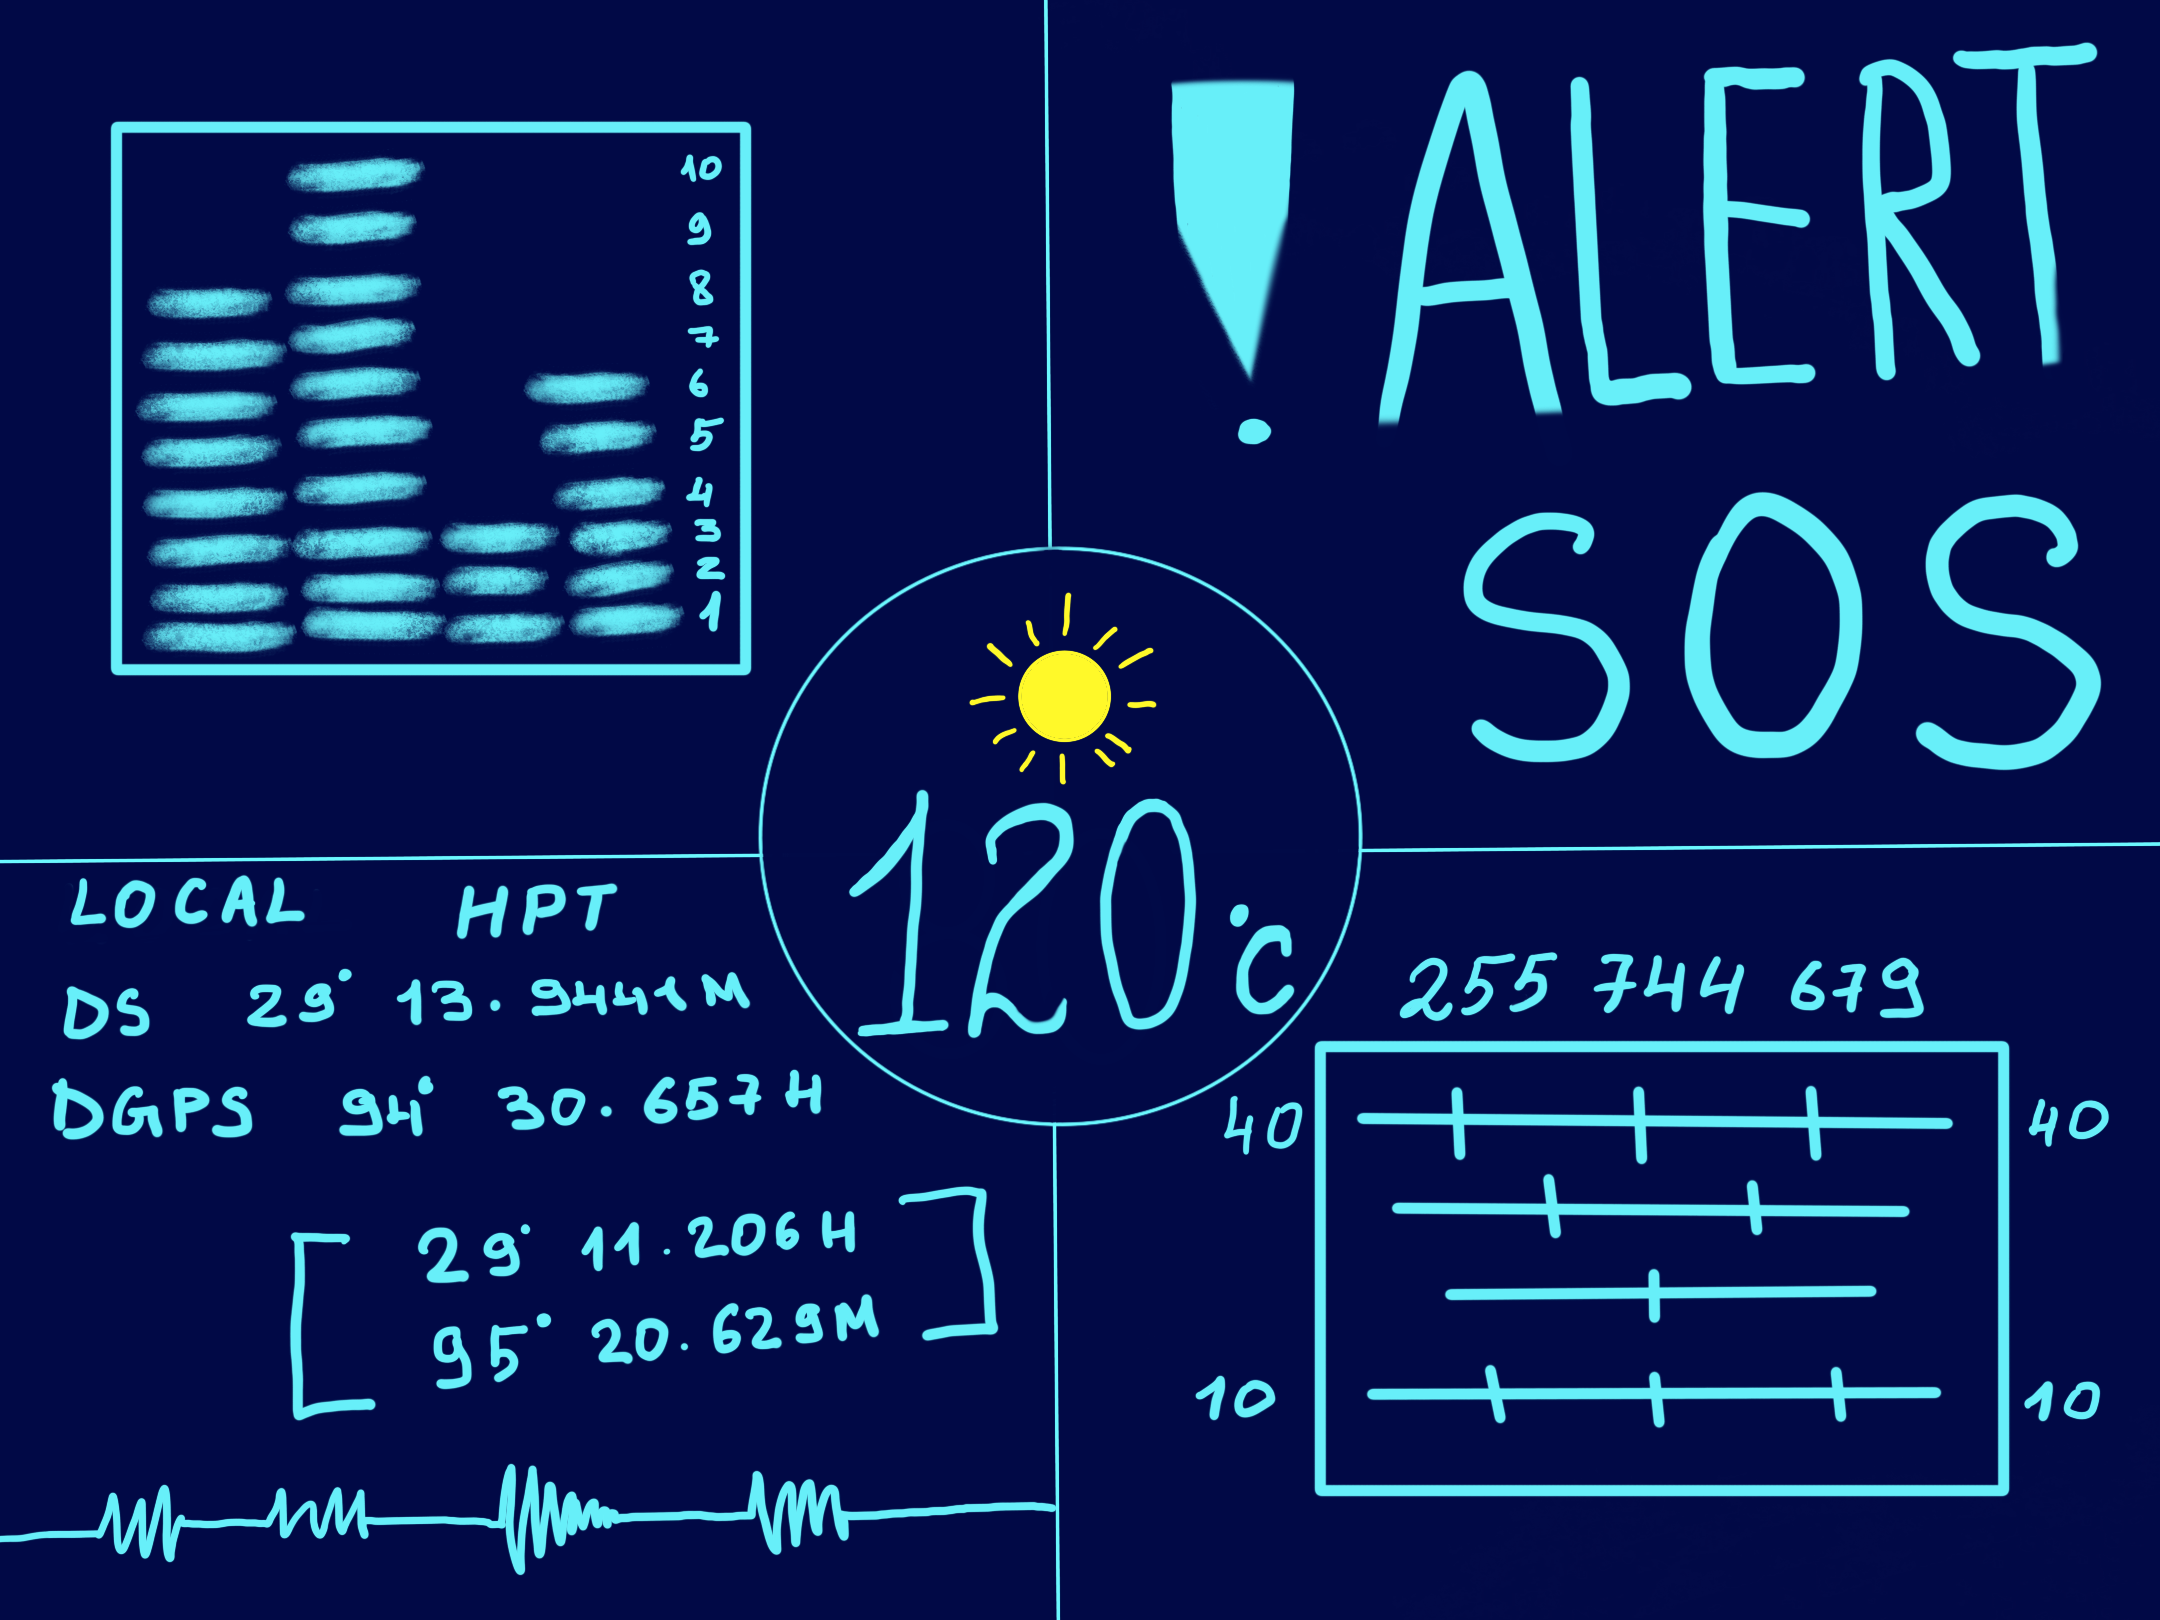 10
9
8
7
6
5
4
3
2
1
! ALERT
SOS
120°C
LOCAL HPT
DS 29° 13.9441M
DGPS 94° 30.657H
[ 29° 11.206H
95° 20.629M ]
255 744 679
40 40
10 10